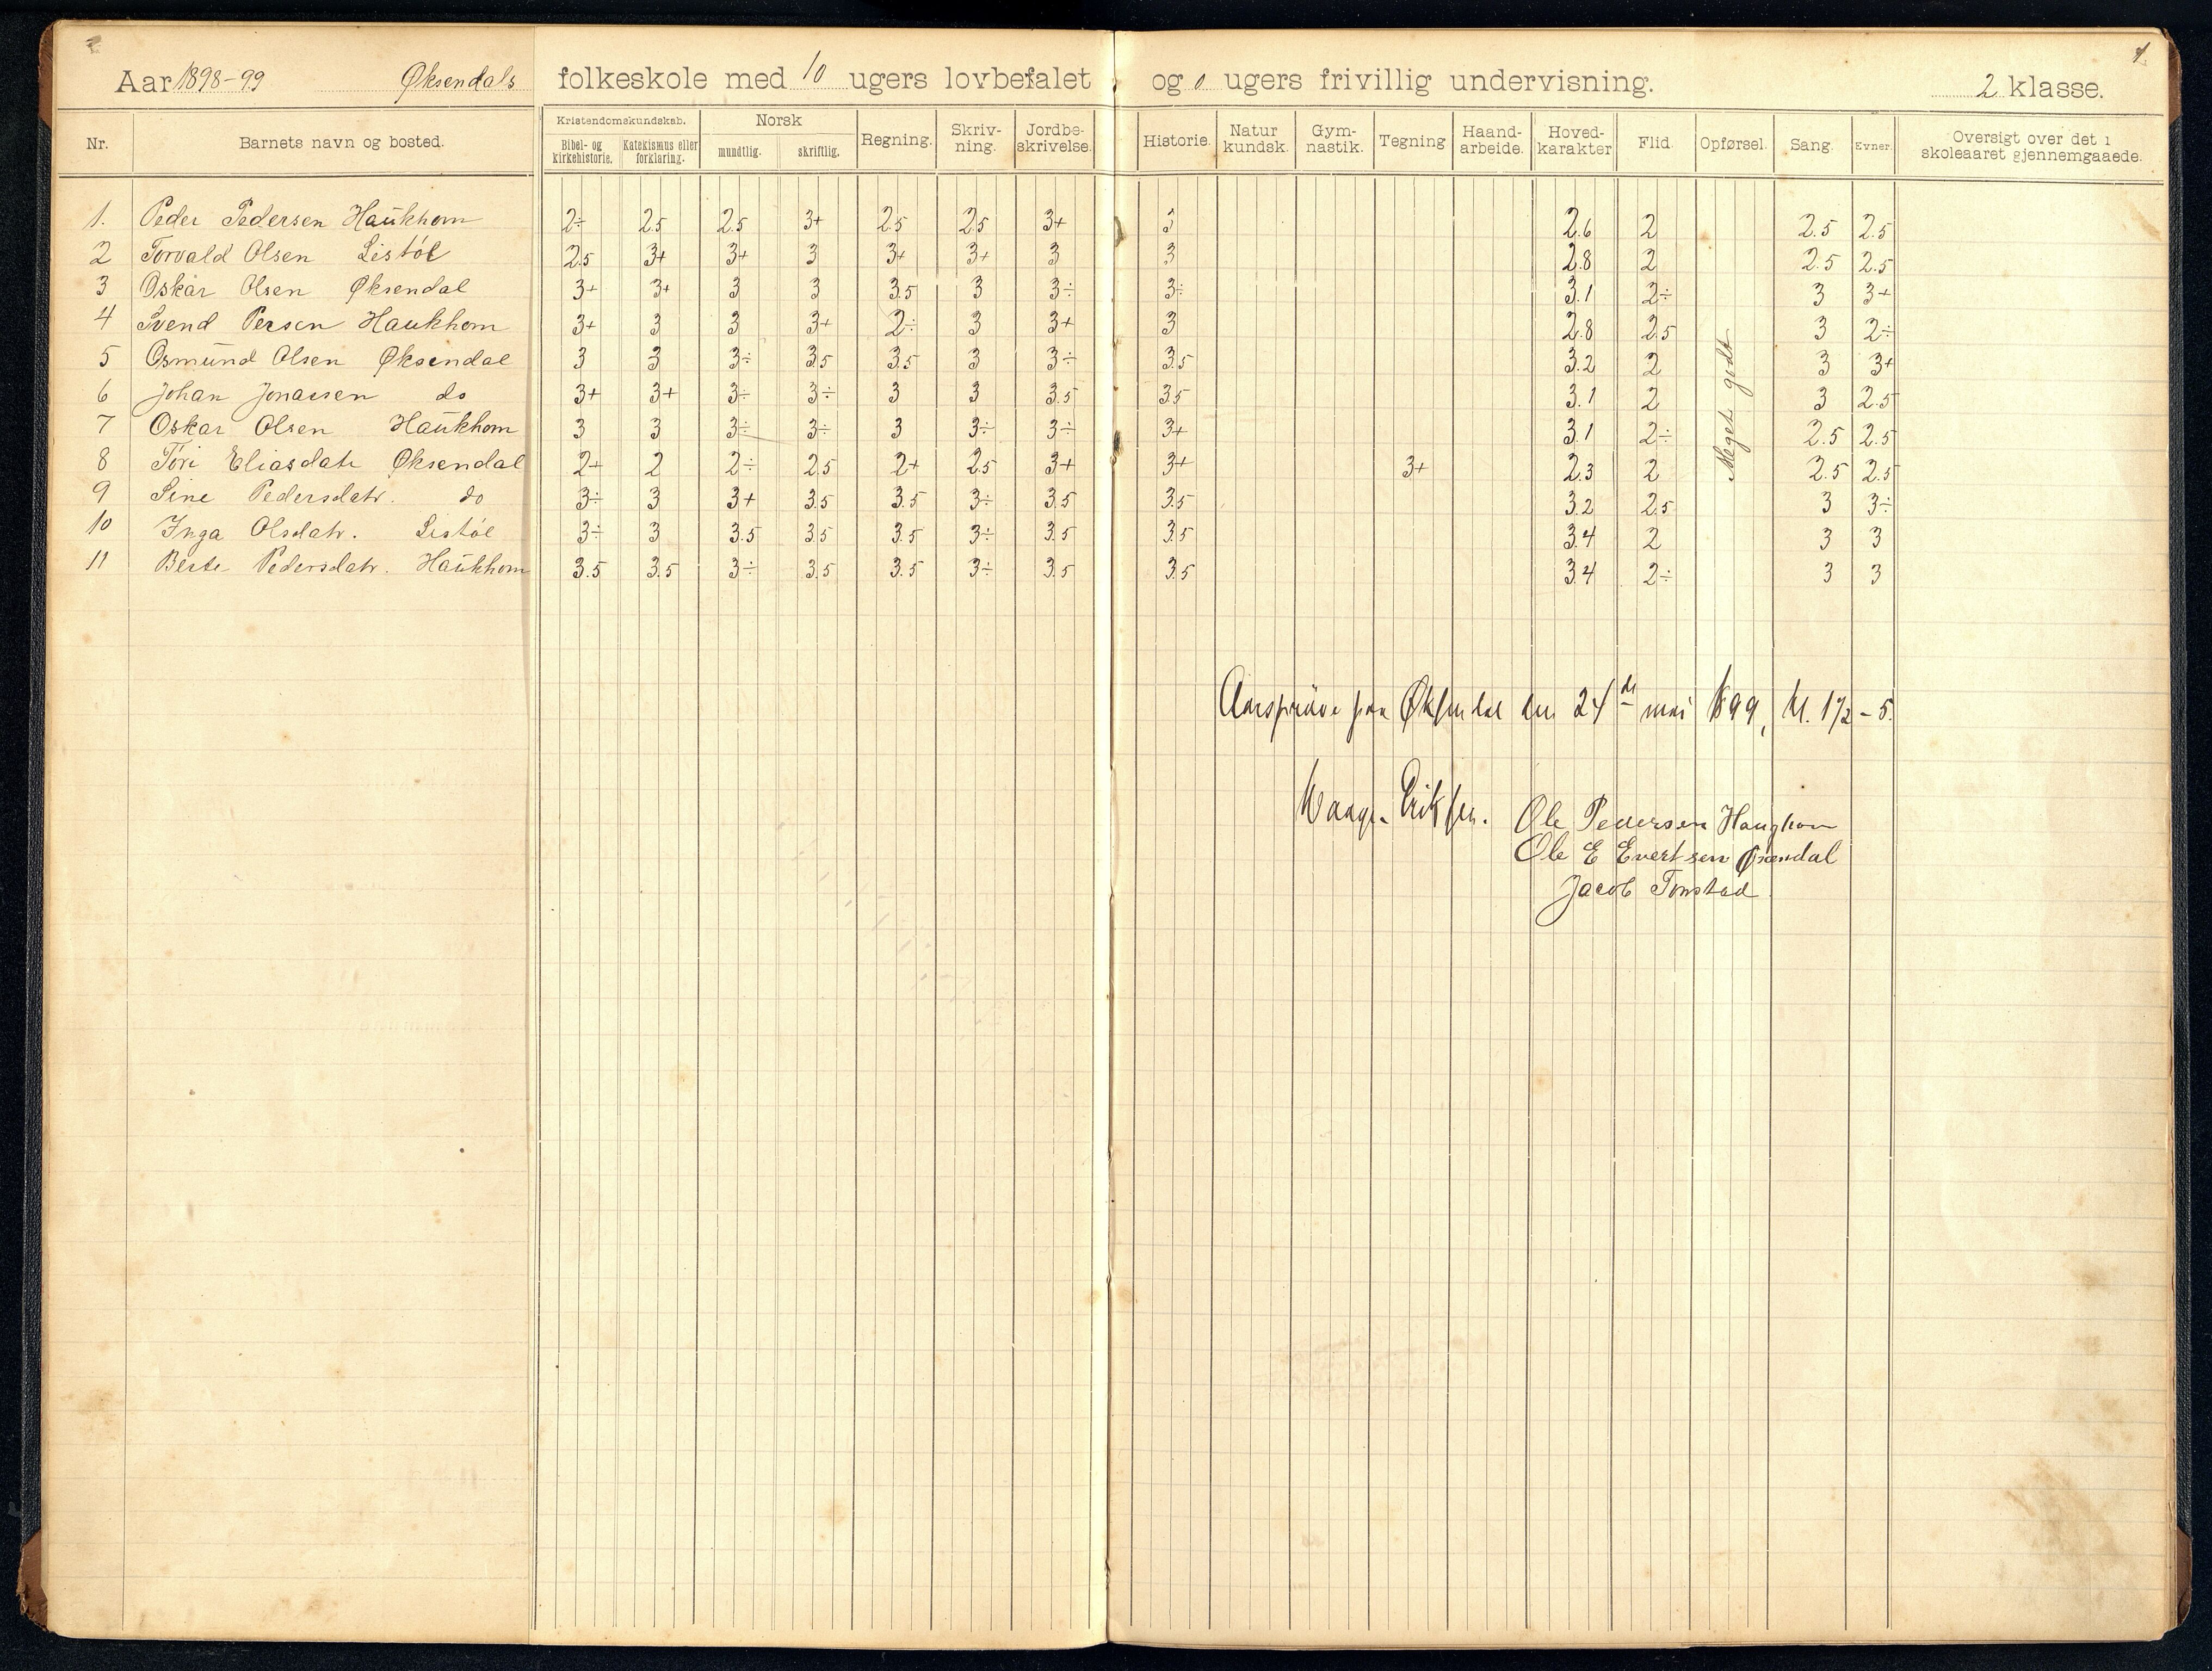 1
Aar 1898-99 Øksendals folkeskole med 10 ugers lovbefalet og 0 ugers frivillig undervisning. 2 klasse.
Nr. Barnets navn og bosted. Kristendomskundskab. Bibel- og kirkehistorie. Katekismus eller forklaring. Norsk mundtlig. skriftlig. Regning. Skriv-ning. Jordbe-skrivelse. Historie. Natur kundsk. Gym-nastik. Tegning Haand-arbeide. Hoved-karakter Flid. Opførsel. Sang. Evner. Oversigt over det i skoleaaret gjennemgaaede.
1. Peder Pedersen Haukhom 2÷ 2.5 2.5 3+ 2.5 2.5 3+ 3 2.6 2 2.5 2.5
2 Torvald Olsen Listøl 2.5 3+ 3+ 3 3+ 3+ 3 3 2.8 2 2.5 2.5
3 Oskar Olsen Øksendal 3+ 3+ 3 3 3.5 3 3÷ 3÷ 3.1 2÷ 3 3+
4 Svend Persen Haukhom 3+ 3 3 3+ 2÷ 3 3+ 3 2.8 2.5 3 2÷
5 Osmund Olsen Øksendal 3 3 3÷ 3.5 3.5 3 3÷ 3.5 3.2 2 3 3+
6 Johan Jonassen do 3+ 3+ 3÷ 3÷ 3 3 3.5 3.5 3.1 2 3 2.5
7 Oskar Olsen Haukhom 3 3 3÷ 3÷ 3 3÷ 3÷ 3+ 3.1 2÷ 2.5 2.5
8 Tori Eliasdatr Øksendal 2+ 2 2÷ 2.5 2+ 2.5 3+ 3+ 3+ 2.3 2 2.5 2.5
9 Sine Pedersdatr. do 3÷ 3 3+ 3.5 3.5 3÷ 3.5 3.5 3.2 2.5 3 3÷
10 Inga Olsdatr. Listøl 3÷ 3 3.5 3.5 3.5 3÷ 3.5 3.5 3.4 2 3 3
11 Berte Pedersdatr. Haukhom 3.5 3.5 3÷ 3.5 3.5 3÷ 3.5 3.5 3.4 2÷ 3 3
Meget godt
Aarsprøve paa Øksendal den 24de mai 1899, kl. 1½ - 5.
Waage Eriksen. Ole Pedersen Haughom
Ole E Evertsen Øxendal
Jacob Tonstad